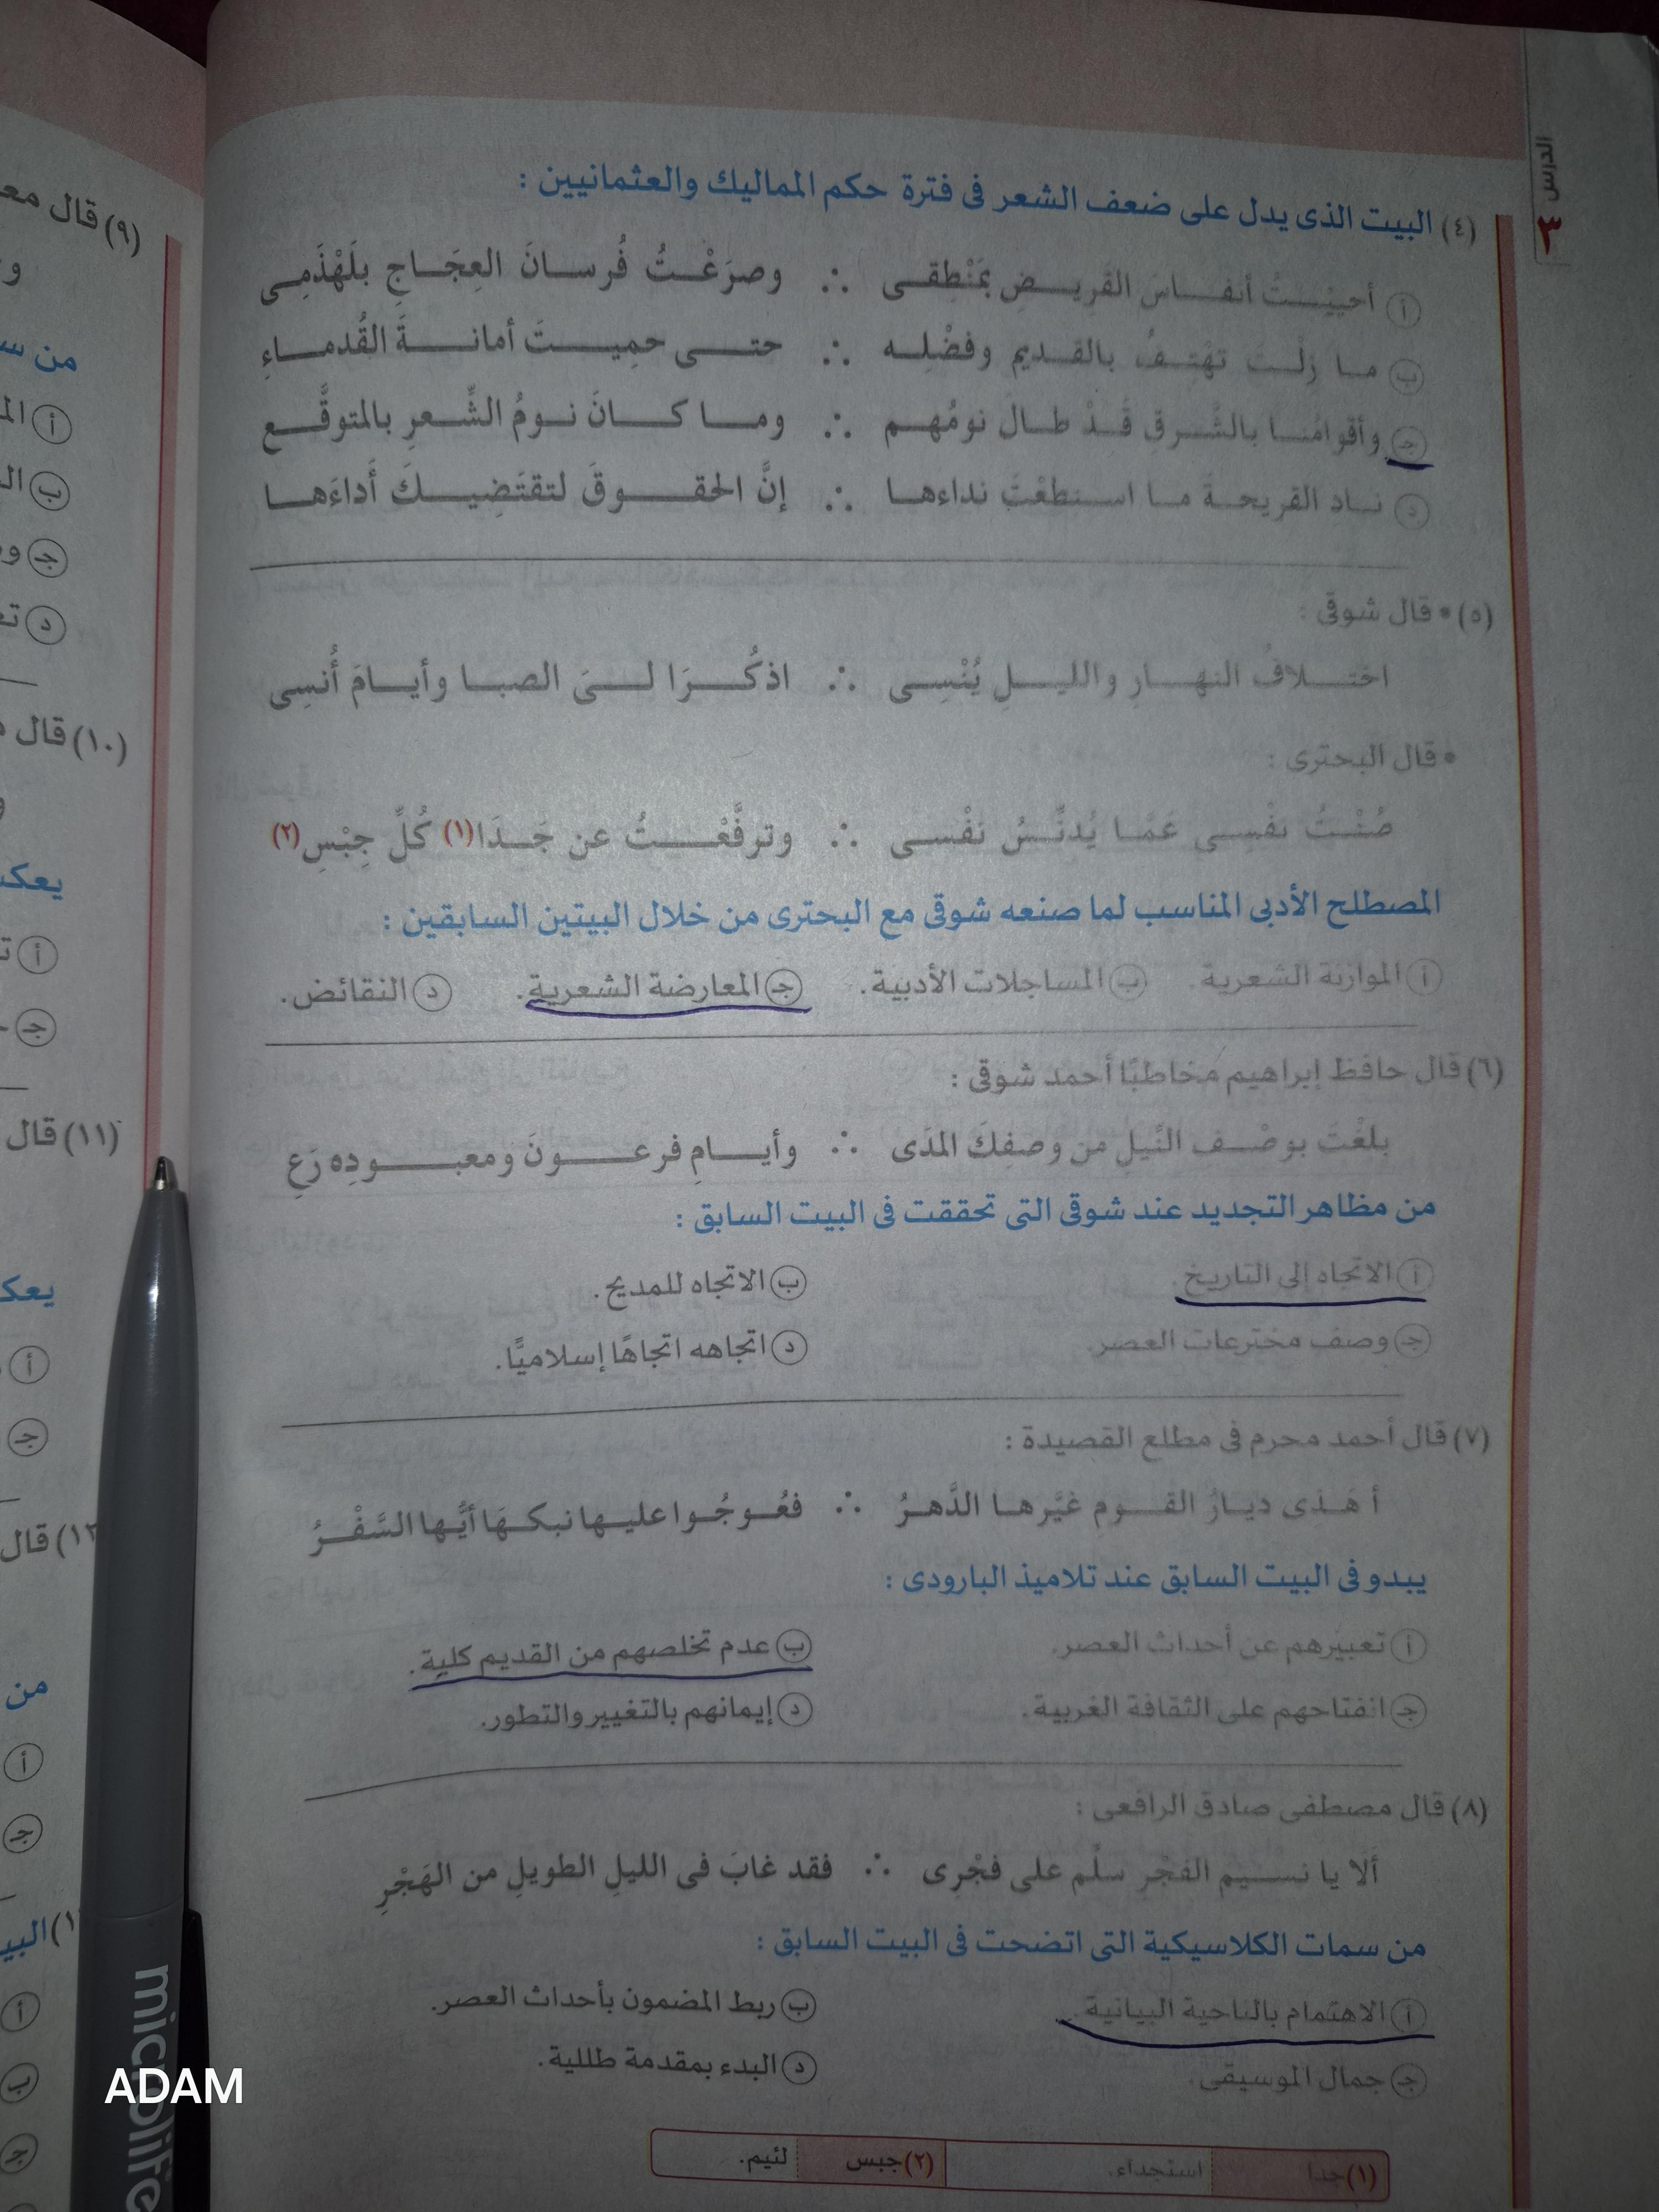 الدرس ٣
(٤) البيت الذى يدل على ضعف الشعر فى فترة حكم المماليك والعثمانيين :
أ أحييْتُ أنفاسَ القريضِ بمَنْطِقى ∴ وصرَعْتُ فُرسانَ العِجَاجِ بلَهْذَمِى
ب ما زلْتَ تهْتِفُ بالقديم وفضْلِه ∴ حتى حمِيتَ أمانةَ القُدماءِ
جـ وأقوامُنا بالشَّرقِ قَدْ طال نومُهم ∴ وما كانَ نومُ الشِّعرِ بالمتوقَّع
د نادِ القريحةَ ما استطعْتَ نداءها ∴ إنَّ الحقوقَ لتقتَضِيكَ أَداءَها
(٥) • قال شوقى :
اختلافُ النهارِ والليلِ يُنْسِى ∴ اذكُرَا لىَ الصبا وأيامَ أُنسِى
• قال البحترى :
صُنْتُ نفْسِى عَمَّا يُدنِّسُ نفْسى ∴ وترفَّعْتُ عن جَدَا(١) كُلِّ جِبْسِ(٢)
المصطلح الأدبى المناسب لما صنعه شوقى مع البحترى من خلال البيتين السابقين :
أ الموازنة الشعرية. ب المساجلات الأدبية. جـ المعارضة الشعرية. د النقائض.
(٦) قال حافظ إبراهيم مخاطبًا أحمد شوقى :
بلغْتَ بوصْفِ النِّيلِ من وصفِكَ المدَى ∴ وأيامِ فرعونَ ومعبودِه رَعِ
من مظاهر التجديد عند شوقى التى تحققت فى البيت السابق :
أ الاتجاه إلى التاريخ. ب الاتجاه للمديح.
جـ وصف مخترعات العصر. د اتجاهه اتجاهًا إسلاميًّا.
(٧) قال أحمد محرم فى مطلع القصيدة :
أ هَذى ديارُ القومِ غيَّرها الدَّهرُ ∴ فعُوجُوا عليها نبكهَا أيُّها السَّفْرُ
يبدو فى البيت السابق عند تلاميذ البارودى :
أ تعبيرهم عن أحداث العصر. ب عدم تخلصهم من القديم كلية.
جـ انفتاحهم على الثقافة الغربية. د إيمانهم بالتغيير والتطور.
(٨) قال مصطفى صادق الرافعى :
ألا يا نسيم الفجْرِ سلِّم على فجْرِى ∴ فقد غابَ فى الليلِ الطويلِ من الهَجْرِ
من سمات الكلاسيكية التى اتضحت فى البيت السابق :
أ الاهتمام بالناحية البيانية. ب ربط المضمون بأحداث العصر.
جـ جمال الموسيقى. د البدء بمقدمة طللية.
(١) جدا استجداء. (٢) جبس لئيم.
(٩) قال
من
أ
ب
جـ
د
(١٠) قال
يعكس
أ
جـ
(١١) قال
أ
جـ
قال
من
أ
جـ
أ
ب
جـ
ADAM